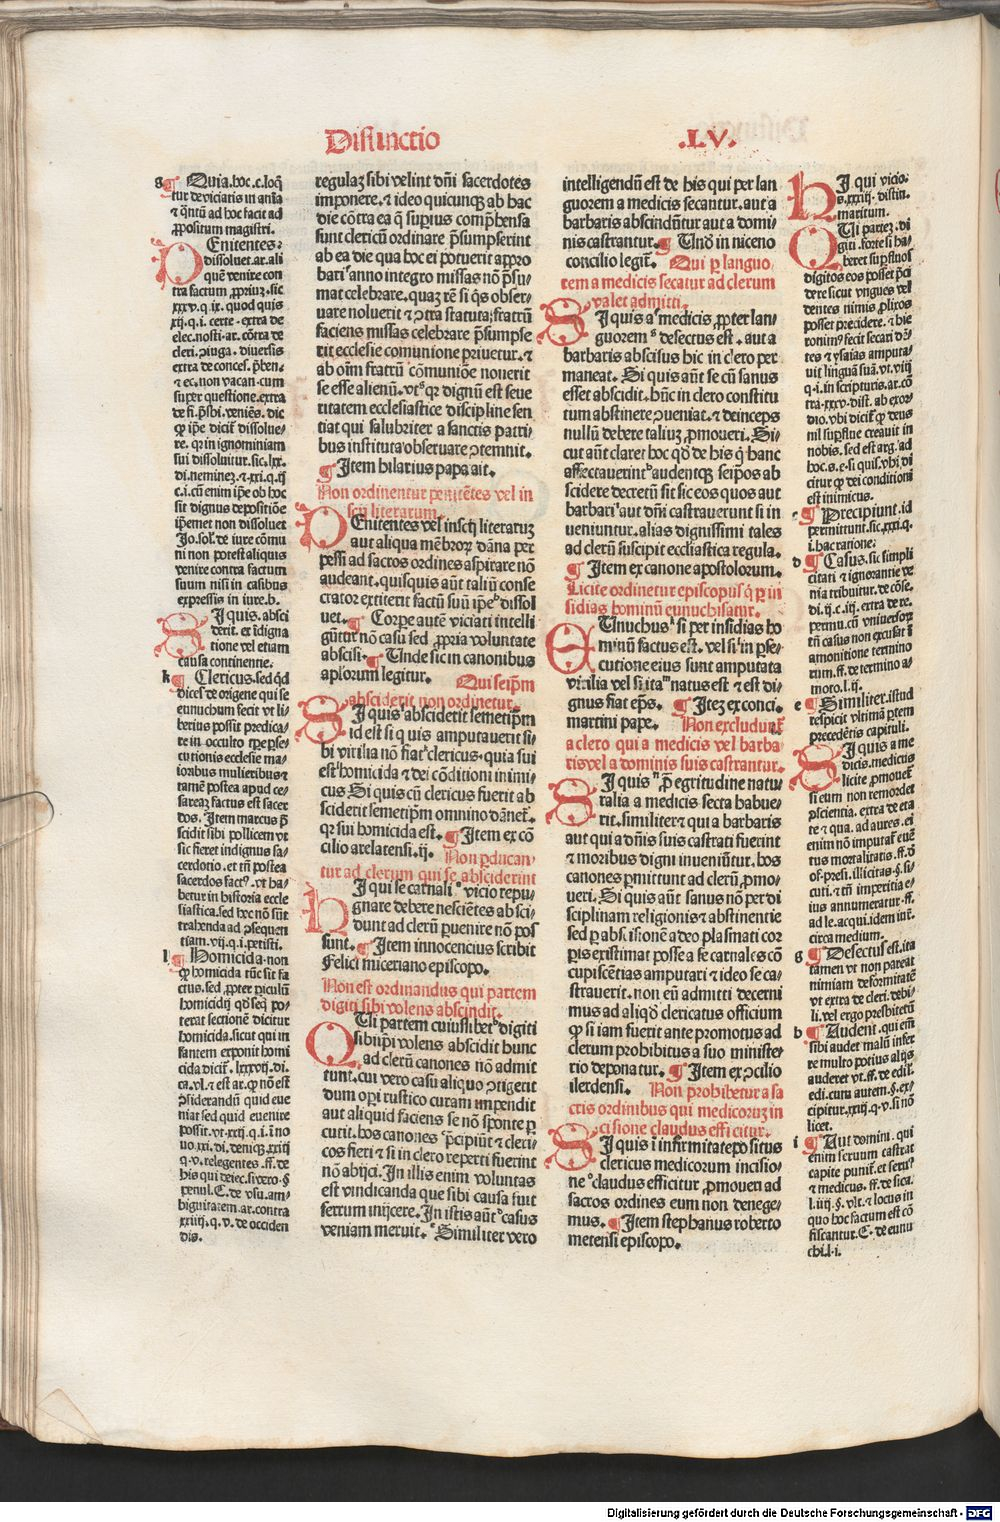 Distinctio
.LV.
g ¶ Quia.hoc.c.loq̃
tur de viciatis in anīa
⁊ q̃ntũ ad hoc facit ad
ꝓpositum magistri.
PEnitentes:
dissoluet.ar.ali
quē venire con
tra factum ,ꝓpriuʒ.sic
xxxv.q.ix.quod quis
xij.q.i. certe.extra de
elec.nosti.ar.cōtra de
cleri.ↄiuga. diuersis
extra de conces.p̃ben.
⁊ ec.non vacan.cum
super questione.extra
de fi.p̃sbi.veniēs. dic
ꝙ ip̄e dicit̃ dissolue/
re. q̃r in ignominiam
sui dissoluitur.sic.lxx.
di.neminez.⁊.xxi.q.ij
c.i.cũ enim ip̄e ob hoc
sit dignus depositiōe
ip̄emet non dissoluet
Jo.sol̃.de iure cōmu
ni non potest aliquis
venire contra factum
suum nisi in casibus
expressis in iure.b.
SI quis.absci
derit. et īdigna
tione vel etiam
causa continentie.
k ¶ Clericus.sed qd̃
dices de origene qui se
eunuchum fecit vt li/
berius possit predica/
re in occulto tp̄e p̱se/
cutionis ecclesie ma/
ioribus mulieribus ⁊
tamē postea apud ce/
sareaʒ factus est sacer
dos. Item marcus p̃
scidit sibi pollicem vt
sic fieret indignus sa/
cerdotio.et tñ postea
sacerdos fact⁹.vt ha/
betur in historia eccle
siastica.sed hoc nō sũt
trahenda ad ↄsequen
tiam.vij.q.i.petisti.
l ¶ Homicida.non
ꝙ homicida tũc sit fa
ctus.sed ,ꝓpter piculũ
homicidij qd̓ seq̃ po/
terat sectionē dicitur
homicida.sicut qui in
fantem exponit homi
cida dicit̃. lxxxvij.di.
ca.vl.⁊ est ar.ꝙ nō est
ↄsiderandũ quid eue
niat sed quid euenire
possit.vt.xxij.q.i.ī no
uo.xxi.di.deniqʒ.xxiij
q.v.relegentes.ff.de
his qui deiec.si vero.§
penul.C.de vsu.am/
biguitatem.ar.contra
xxiiij.q.v.de occiden
dis.
regulaʒ sibi velint dñi sacerdotes
imponere.⁊ ideo quicunqʒ ab hac
die cōtra ea q̃ supius comp̃hensa
sunt clericũ ordinare p̃sumpserint
ab ea die qua hoc ei potuerit appro
bari anno integro missas nō p̃su/
mat celebrare.quaʒ rē si q̃s obser/
uare noluerit ⁊ ↄtra statuta fratrũ
faciens missas celebrare p̃sumpse
rit ecclesie comunione priuetur.⁊
ab oīm fratrũ cōmuniōe nouerit
se esse alienũ.vt qr dignũ est seue
ritatem ecclesiastice discipline sen
tiat qui salubriter a sanctis patri/
bus instituta obseruare ↄtemnit.
¶ Item hilarius papa ait.
Non ordinentur penitētes vel in
scij literarum.
PEnitentes vel inscij literatuʒ
aut aliqua mēbroꝝ dāna per
pessi ad sacros ordines aspirare nō
audeant.quisquis aut taliũ conse
crator extiterit factũ suũ ip̄e dissol
uet.¶ Corꝑe autē viciati intelli
gũtur nō casu sed ,ꝓpria voluntate
abscisi.¶ Unde sic in canonibus
ap̄lorum legitur. Qui seip̄m
absciderit non ordinetur.
SI quis absciderit semetip̄m
id est si quis amputauerit si/
bi virilia nō fiat clericus.quia sui
est homicida ⁊ dei cōditioni inimi
cus Si quis cũ clericus fuerit ab
sciderit semetip̄m omnino dānet̃.
qr sui homicida est.¶ Item ex cō
cilio arelatensi.ij. Non ꝓducan/
tur ad clerum qui se absciderint
HI qui se carnali vicio repu/
gnare debere nesciētes absci/
dunt ad clerũ puenire nō pos
sunt.¶ Item innocencius scribit
Felici nuceriano episcopo.
Non est ordinandus qui partem
digiti sibi volens abscindit.
QUi partem cuiuslibet digiti
sibiip̄i volens abscidit hunc
ad clerũ canones nō admit
tunt.cui vero casu aliquo ↄtigerit
dum opi rustico curam impendit
aut aliquid faciens se nō sponte ꝑ
cutit.hos canones p̃cipiũt ⁊ cleri/
cos fieri ⁊ si in clero reperti fuerint
nō abijci.In illis enim voluntas
est vindicanda que sibi causa fuit
ferrum inijcere.In istis aũt casus
veniam meruit. Similiter vero
intelligendũ est de his qui per lan
guorem a medicis secantur.aut a
barbaris abscindũtur aut a domi/
nis castrantur.¶ Und̓ in niceno
concilio legit̃. Qui ꝑ languo
rem a medicis secatur ad clerum
valet admitti.
SI quis a medicis ,ꝓpter lan/
guorem desectus est. aut a
barbaris abscisus hic in clero per
maneat. Si quis aũt se cũ sanus
esset abscidit.hũc in clero constitu
tum abstinere ↄueniat.⁊ deinceps
nullũ debere taliuʒ ,ꝓmoueri. Si/
cut aũt claret hoc qd̓ de his q̃ hanc
affectauerint audentqʒ seip̄os ab
scidere decretũ sit sic eos quos aut
barbari aut dñi castrauerunt si in
ueniuntur.alias dignissimi tales
ad clerũ suscipit ecclesiastica regula.
¶ Item ex canone apostolorum.
Licite ordinetur episcopus q̃ ꝑ in
sidias hominũ eunuchisatur.
EUnuchus si per insidias ho
minũ factus est. vel si in ꝑse/
cutione eius sunt amputata
virilia vel si ita natus est ⁊ est di/
gnus fiat ep̄s. ¶ Iteʒ ex conci.
martini pape. Non excludunt̃
a clero qui a medicis vel barba/
ris vel a dominis suis castrantur.
SI quis p̃ egritudine natu/
ralia a medicis secta habue/
rit.similiter ⁊ qui a barbaris
aut qui a dñis suis castrati fuerint
⁊ moribus digni inueniũtur. hos
canones pmittunt ad clerũ ,ꝓmo/
ueri. Si quis aũt sanus nō per di
sciplinam religionis ⁊ abstinentie
sed ꝑ abscisionē a deo plasmati cor
pis existimat posse a se carnales cō
cupiscētias amputari ⁊ ideo se ca/
strauerit.non eũ admitti decerni
mus ad aliqd̓ clericatus officium
ꝙ si iam fuerit ante promotus ad
clerum prohibitus a suo ministe/
rio deponatur.¶ Item ex ↄcilio
ilerdensi. Non prohibetur a sa
cris ordinibus qui medicoruʒ in
cisione claudus efficitur.
SI quis ī infirmitate positus
clericus medicorum incisio/
ne claudus efficitur ,ꝓmoueri ad
sacros ordines eum non denege/
mus.¶ Item stephanus roberto
metensi episcopo.
HI qui vicio.
s.xxiij. distin.
maritum.
QUi partez.di
giti.forte si ha/
beret supfluos
digitos eos posset p̃ci
dere sicut vngues vel
dentes nimis ,plixos
posset precidere.⁊ hie
ronim⁹ fecit secari dē/
tes ⁊ ysaias amputa/
uit linguā suā.vt.viij
q.i.in scripturis.ar.cō
tra.xxv.dist.ab exor/
dio.vbi dicit̃ ꝙ deus
nil supflue creauit in
nobis.sed est arg.ad
hoc.s.e.si quis.vbi di
citur ꝙ dei conditioni
est inimicus.
c ¶ Precipiunt.id
permittunt.sic.xxxi.q.
i.hac ratione.
d ¶ Casus.sic simpli
citati ⁊ ignorantie ve
nia tribuitur.de cōse.
di.ij.c.iij.extra de re.
permu.cũ vniuersoꝝ
tñ casus non excusat ī
amonitione termino
rum.ff.de termino a/
moto.l.ij.
e ¶ Similiter.istud
respicit vltimā ptem
precedētis capituli.
SI quis a me
dicis.medicus
licite ,pmouet̃
si eum non remordet
,pscientia.extra de eta
te ⁊ qua.ad aures.ei
enim nō imputat̃ euē
tus mortalitatis.ff.d̓
of.presi.illicitas.§.si/
cuti.⁊ tñ imperitia e/
ius annumeratur.ff.
ad le.acqui.idem iur̃.
circa medium.
g ¶ Desectus est.ita
tamen vt non pareat
nimiam deformitatē
vt extra de cleri.debi/
li.vel ergo presbiterũ
h ¶ Audent. qui em̄
sibi audet malũ infer
re multo potius alijs
auderet vt.ff.de edil̃.
edi.cum autem.§.ex/
cipitur.xxiij.q.v.si nō
licet.
i ¶ Aut domini. qui
enim seruum castrat
capite punit̃.et seru⁹
⁊ medicus. ff.de sica.
l.iiij.§.vlt.⁊ locus in
quo hoc factum est cō
fiscantur.C.de eunu
chi.l.i.
Digitalisierung gefördert durch die Deutsche Forschungsgemeinschaft - DFG